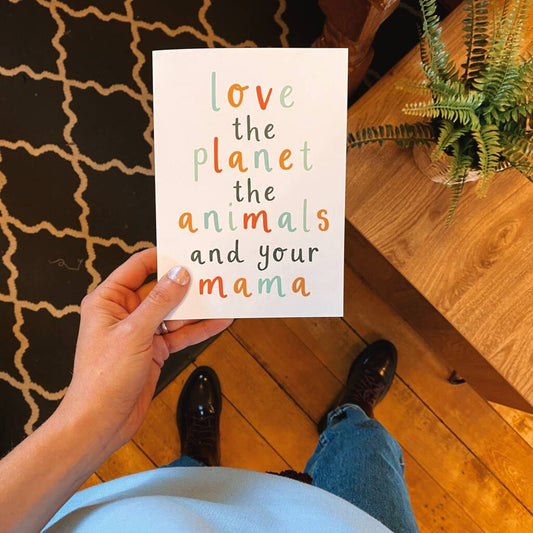 love
the
planet
the
animals
and your
mama